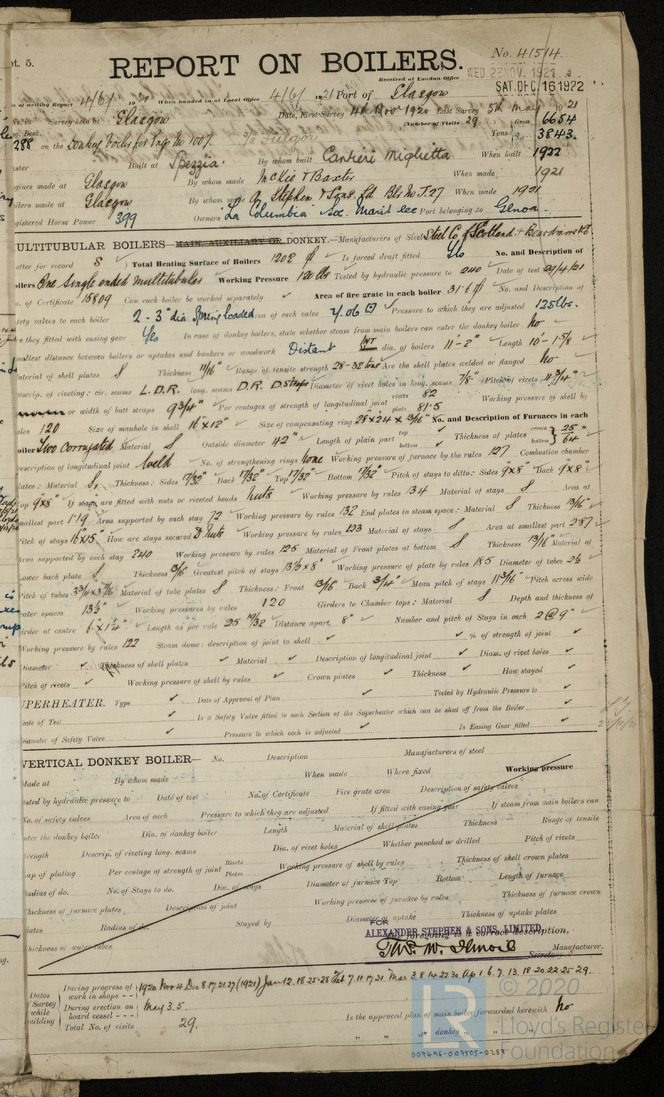 pt. 5.
REPORT ON BOILERS.
No. 41514
Received at London Office
WED. 23 NOV. 1921
SAT. DEC. 16 1922
of writing Report 4/6/1921 When handed in at Local Office 4/6/1921 Port of Glasgow
Survey held at Glasgow Date, First Survey 4th Nov 1920 Last Survey 5th May 1921
Book. (Number of Visits 29) Gross 6654
288 on the Donkey boiler for Eng No 1007. Tons 3843.
Built at Spezzia: By whom built Cantieri Miglietta When built 1922
gines made at Glasgow By whom made McClie & Baxter When made 1921
ilers made at Glasgow By whom made A. Stephen & Sons Ld Blr No J.27 When made 1921
gistered Horse Power 399 Owners La Columbia Soc. Marit ec Port belonging to Genoa.
ULTITUBULAR BOILERS—MAIN, AUXILIARY OR DONKEY.—Manufacturers of Steel Steel Co of Scotland & Beardmore
tter for record S Total Heating Surface of Boilers 1202 Is forced draft fitted No No. and Description of
oilers One Single ended multitubular Working Pressure 120 lbs Tested by hydraulic pressure to 240 Date of test 20/4/21
o. of Certificate 15809 Can each boiler be worked separately ✓ Area of fire grate in each boiler 31.6 No. and Description of
fety valves to each boiler 2 - 3" dia Spring loaded Area of each valve 7.06 Pressure to which they are adjusted 125 lbs.
re they fitted with easing gear Yes In case of donkey boilers, state whether steam from main boilers can enter the donkey boiler No
mallest distance between boilers or uptakes and bunkers or woodwork Distant INT dia. of boilers 11'-2" Length 10'-1 5/8
aterial of shell plates S Thickness 11/16" Range of tensile strength 28-32 tons Are the shell plates welded or flanged No
escrip. of riveting: cir. seams L.D.R. long. seams D.R. D straps Diameter of rivet holes in long. seams 7/8" Pitch of rivets 4 3/4"
or width of butt straps 9 3/4" Per centages of strength of longitudinal joint rivets 82 plate 81.5 Working pressure of shell by
ules 120 Size of manhole in shell 16"x12" Size of compensating ring 28"x24"x13/16" No. and Description of Furnaces in each
boiler Two Corrugated Material S Outside diameter 42" Length of plain part top bottom Thickness of plates crown bottom 25/64"
escription of longitudinal joint Weld No. of strengthening rings None Working pressure of furnace by the rules 127 Combustion chamber
lates: Material S Thickness: Sides 17/32" Back 17/32" Top 17/32" Bottom 17/32" Pitch of stays to ditto: Sides 9x8" Back 9x8"
op 9x8" If stays are fitted with nuts or riveted heads Nuts Working pressure by rules 134 Material of stays S Area at
mallest part 1.19 Area supported by each stay 72 Working pressure by rules 132 End plates in steam space: Material S Thickness 13/16"
itch of stays 16x15" How are stays secured D. Nuts Working pressure by rules 123 Material of stays S Area at smallest part 2.87
rea supported by each stay 240 Working pressure by rules 125 Material of Front plates at bottom S Thickness 13/16" Material of
ower back plate S Thickness 13/16 Greatest pitch of stays 13½x8" Working pressure of plate by rules 185 Diameter of tubes 2½
itch of tubes Material of tube plates S Thickness: Front 13/16" Back 3/4" Mean pitch of stays 11 3/16" Pitch across wide
ater spaces 13½" Working pressures by rules 120 Girders to Chamber tops: Material S Depth and thickness of
irder at centre 6 x 1¼" Length as per rule 25 11/32 Distance apart 8" Number and pitch of Stays in each 2 @ 9"
Working pressure by rules 122 Steam dome: description of joint to shell ✓ % of strength of joint ✓
Diameter ✓ Thickness of shell plates ✓ Material ✓ Description of longitudinal joint ✓ Diam. of rivet holes ✓
Pitch of rivets ✓ Working pressure of shell by rules ✓ Crown plates ✓ Thickness ✓ How stayed ✓
UPERHEATER. Type ✓ Date of Approval of Plan ✓ Tested by Hydraulic Pressure to ✓
ate of Test ✓ Is a Safety Valve fitted to each Section of the Superheater which can be shut off from the Boiler ✓
iameter of Safety Valve ✓ Pressure to which each is adjusted ✓ Is Easing Gear fitted ✓
VERTICAL DONKEY BOILER— No. Description Manufacturers of steel
Made at By whom made When made Where fixed Working pressure
ested by hydraulic pressure to Date of test No. of Certificate Fire grate area Description of safety valves
No. of safety valves Area of each Pressure to which they are adjusted If fitted with easing gear If steam from main boilers can
nter the donkey boiler Dia. of donkey boiler Length Material of shell plates Thickness Range of tensile
trength Descrip. of riveting long. seams Dia. of rivet holes Whether punched or drilled Pitch of rivets
ap of plating Per centage of strength of joint Rivets Plates Working pressure of shell by rules Thickness of shell crown plates
adius of do. No. of Stays to do. Dia. of stays Diameter of furnace Top Bottom Length of furnace
hickness of furnace plates Description of joint Working pressure of furnace by rules Thickness of furnace crown
lates Radius of do. Stayed by Diameter of uptake Thickness of uptake plates
hickness of water tubes
FOR
ALEXANDER STEPHEN & SONS, LIMITED.
foregoing is a correct description,
Secretary Manufacturer.
Dates of Survey while building
During progress of work in shops - - 1920 Nov 4 Dec 8.17.21.27 (1921) Jan 12.18.25.28 Feb 7.11.17.21 Mar 3.8.14.22.30 Ap 1.6.7.13.18.20.22.25.29.
During erection on board vessel - - - May 3.5.
Total No. of visits 29.
Is the approved plan of main boiler forwarded herewith No
" " donkey " " "
© 2020
LR
Lloyd's Register
Foundation
007496-007505-0287